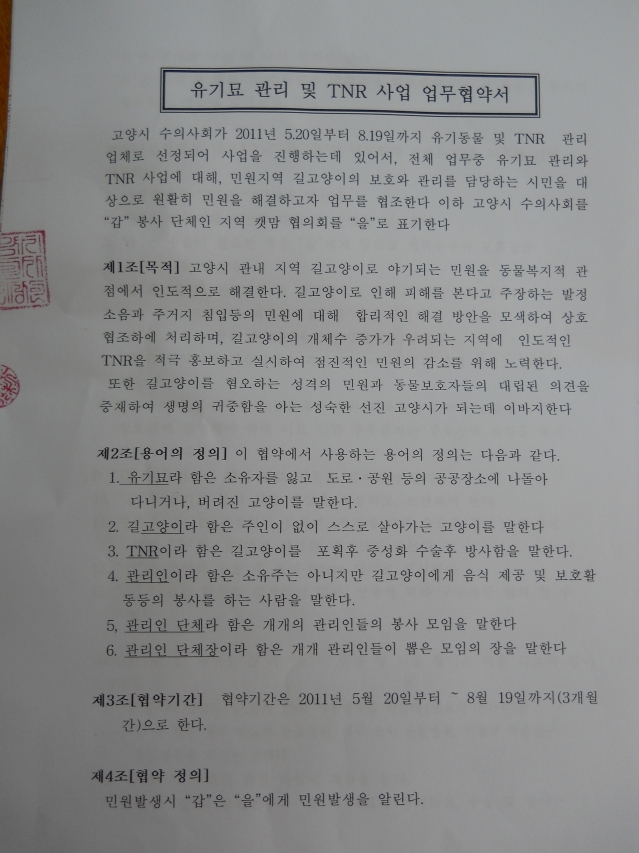 유기묘 관리 및 TNR 사업 업무협약서
고양시 수의사회가 2011년 5.20일부터 8.19일까지 유기동물 및 TNR 관리
업체로 선정되어 사업을 진행하는데 있어서, 전체 업무중 유기묘 관리와
TNR 사업에 대해, 민원지역 길고양이의 보호와 관리를 담당하는 시민을 대
상으로 원활히 민원을 해결하고자 업무를 협조한다 이하 고양시 수의사회를
“갑” 봉사 단체인 지역 캣맘 협의회를 “을”로 표기한다
제1조[목적] 고양시 관내 지역 길고양이로 야기되는 민원을 동물복지적 관
점에서 인도적으로 해결한다. 길고양이로 인해 피해를 본다고 주장하는 발정
소음과 주거지 침입등의 민원에 대해 합리적인 해결 방안을 모색하여 상호
협조하에 처리하며, 길고양이의 개체수 증가가 우려되는 지역에 인도적인
TNR을 적극 홍보하고 실시하여 점진적인 민원의 감소를 위해 노력한다.
또한 길고양이를 혐오하는 성격의 민원과 동물보호자들의 대립된 의견을
중재하여 생명의 귀중함을 아는 성숙한 선진 고양시가 되는데 이바지한다
제2조[용어의 정의] 이 협약에서 사용하는 용어의 정의는 다음과 같다.
1. 유기묘라 함은 소유자를 잃고 도로·공원 등의 공공장소에 나돌아
다니거나, 버려진 고양이를 말한다.
2. 길고양이라 함은 주인이 없이 스스로 살아가는 고양이를 말한다
3. TNR이라 함은 길고양이를 포획후 중성화 수술후 방사함을 말한다.
4. 관리인이라 함은 소유주는 아니지만 길고양이에게 음식 제공 및 보호활
동등의 봉사를 하는 사람을 말한다.
5, 관리인 단체라 함은 개개의 관리인들의 봉사 모임을 말한다
6. 관리인 단체장이라 함은 개개 관리인들이 뽑은 모임의 장을 말한다
제3조[협약기간] 협약기간은 2011년 5월 20일부터 ~ 8월 19일까지(3개월
간)으로 한다.
제4조[협약 정의]
민원발생시 “갑”은 “을”에게 민원발생을 알린다.